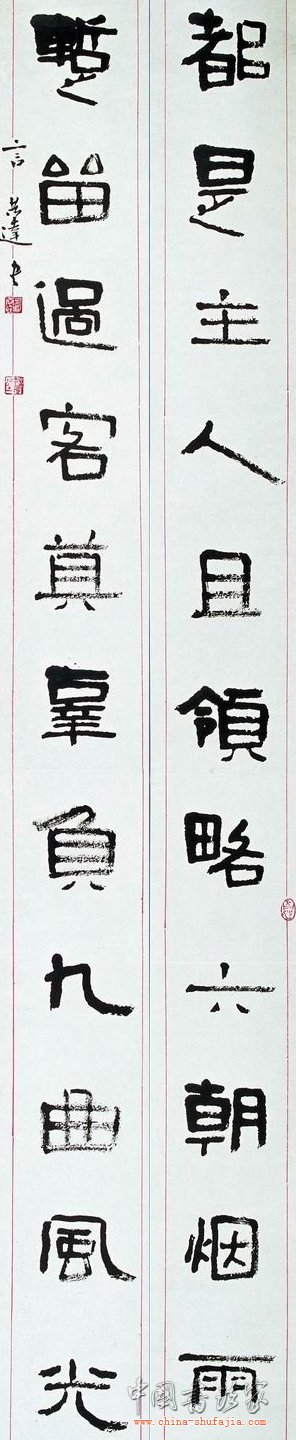 都是主人且領略六朝烟雨
暫留過客莫辜負九曲風光
言恭達书
中國書法家
www.china-shufajia.com